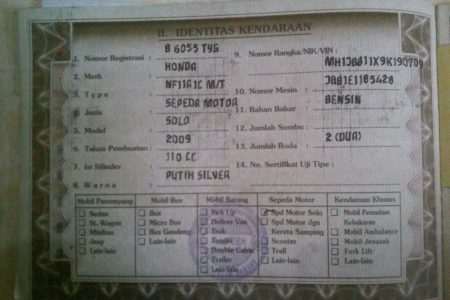 II. IDENTITAS KENDARAAN
1. Nomor Registrasi : B 6055 TYG
2. Merk : HONDA
3. Type : NF11A1C M/T
4. Jenis : SEPEDA MOTOR
5. Model : SOLO
6. Tahun Pembuatan : 2009
7. Isi Silinder : 110 CC
8. Warna : PUTIH SILVER
9. Nomor Rangka/NIK/VIN :
10. Nomor Mesin : JBB1E1185428
11. Bahan Bakar : BENSIN
12. Jumlah Sumbu :
13. Jumlah Roda : 2 (DUA)
14. No. Sertifikat Uji Tipe :
Mobil Penumpang
Sedan
St. Wagon
Minibus
Jeep
Lain-lain
Mobil Bus
Bus
Micro Bus
Bus Gandeng
Lain-lain
Mobil Barang
Pick Up
Deliver Van
Truk
Tangki
Double Cabin
Trailer
Lain-lain
Sepeda Motor
Spd Motor Solo
Spd Motor dgn
Kereta Samping
Scooter
Trail
Lain-lain
Kendaraan Khusus
Mobil Pemadam
Kebakaran
Mobil Ambulance
Mobil Jenazah
Fork Lift
Lain-lain